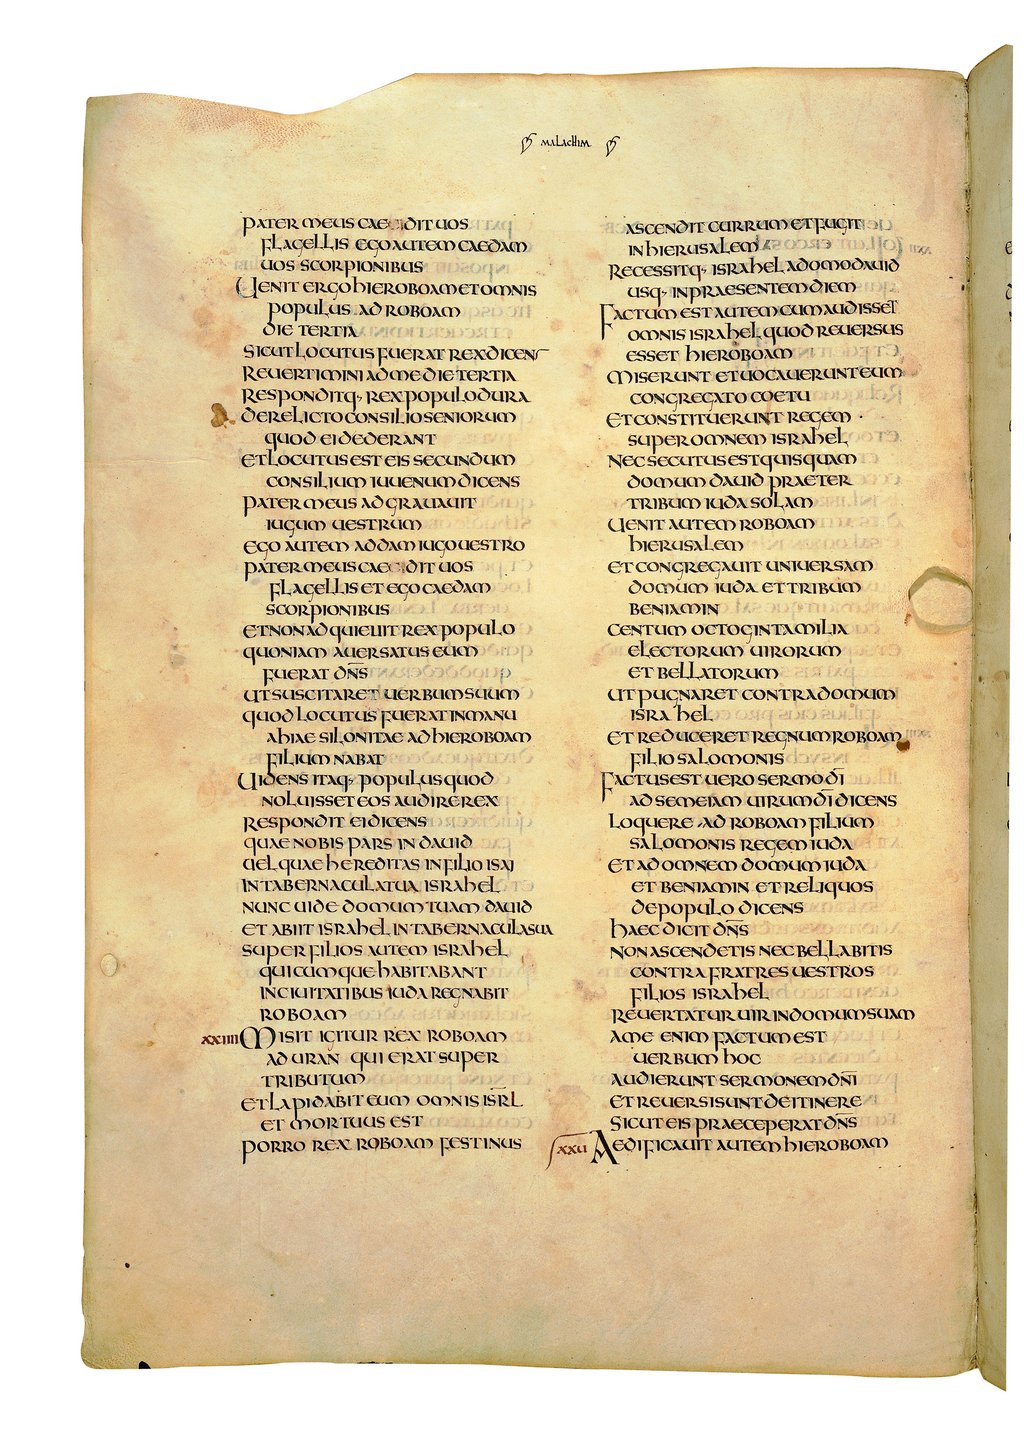 MALACHIM
PATER MEUS CAECIDIT UOS
FLAGELLIS EGO AUTEM CAEDAM
UOS SCORPIONIBUS
UENIT ERGO HIEROBOAM ET OMNIS
POPULUS AD ROBOAM
DIE TERTIA
SICUT LOCUTUS FUERAT REX DICENS
REUERTIMINI AD ME DIE TERTIA
RESPONDITQ· REX POPULO DURA
DERELICTO CONSILIO SENIORUM
QUOD EI DEDERANT
ET LOCUTUS EST EIS SECUNDUM
CONSILIUM IUUENUM DICENS
PATER MEUS ADGRAUAUIT
IUGUM UESTRUM
EGO AUTEM ADDAM IUGO UESTRO
PATER MEUS CAECIDIT UOS
FLAGELLIS ET EGO CAEDAM
SCORPIONIBUS
ET NON ADQUIEUIT REX POPULO
QUONIAM AUERSATUS EUM
FUERAT DN̅S
UT SUSCITARET UERBUM SUUM
QUOD LOCUTUS FUERAT IN MANU
AHIAE SILONITAE AD HIEROBOAM
FILIUM NABAT
UIDENS ITAQ· POPULUS QUOD
NOLUISSET EOS AUDIRE REX
RESPONDIT EI DICENS
QUAE NOBIS PARS IN DAUID
UEL QUAE HEREDITAS IN FILIO ISAI
IN TABERNACULA TUA ISRAHEL
NUNC UIDE DOMUM TUAM DAUID
ET ABIIT ISRAHEL IN TABERNACULA SUA
SUPER FILIOS AUTEM ISRAHEL
QUICUMQUE HABITABANT
IN CIUITATIBUS IUDA REGNABIT
ROBOAM
XXIIII MISIT IGITUR REX ROBOAM
ADURAN QUI ERAT SUPER
TRIBUTUM
ET LAPIDABIT EUM OMNIS ISR̅L
ET MORTUUS EST
PORRO REX ROBOAM FESTINUS
ASCENDIT CURRUM ET FUGIT
IN HIERUSALEM
RECESSITQ· ISRAHEL A DOMO DAUID
USQ· IN PRAESENTEM DIEM
FACTUM EST AUTEM CUM AUDISSET
OMNIS ISRAHEL QUOD REUERSUS
ESSET HIEROBOAM
MISERUNT ET UOCAUERUNT EUM
CONGREGATO COETU
ET CONSTITUERUNT REGEM
SUPER OMNEM ISRAHEL
NEC SECUTUS EST QUISQUAM
DOMUM DAUID PRAETER
TRIBUM IUDA SOLAM
UENIT AUTEM ROBOAM
HIERUSALEM
ET CONGREGAUIT UNIUERSAM
DOMUM IUDA ET TRIBUM
BENIAMIN
CENTUM OCTOGINTA MILIA
ELECTORUM UIRORUM
ET BELLATORUM
UT PUGNARET CONTRA DOMUM
ISRAHEL
ET REDUCERET REGNUM ROBOAM
FILIO SALOMONIS
FACTUS EST UERO SERMO DI̅
AD SEMEIAM UIRUM DI̅ DICENS
LOQUERE AD ROBOAM FILIUM
SALOMONIS REGEM IUDA
ET AD OMNEM DOMUM IUDA
ET BENIAMIN ET RELIQUOS
DE POPULO DICENS
HAEC DICIT DN̅S
NON ASCENDETIS NEC BELLABITIS
CONTRA FRATRES UESTROS
FILIOS ISRAHEL
REUERTATUR UIR IN DOMUM SUAM
A ME ENIM FACTUM EST
UERBUM HOC
AUDIERUNT SERMONEM DN̅I
ET REUERSI SUNT DE ITINERE
SICUT EIS PRAECEPERAT DN̅S
XXU AEDIFICAUIT AUTEM HIEROBOAM